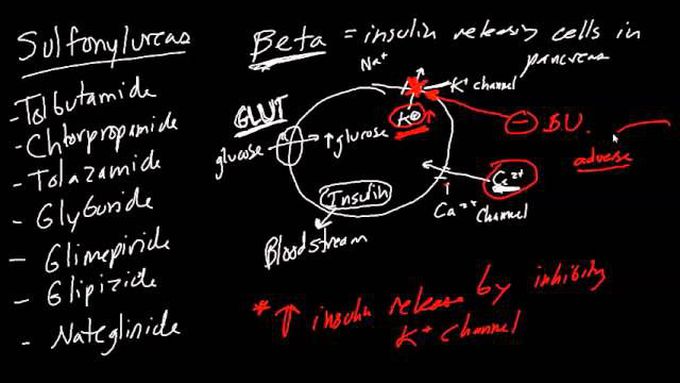 Sulfonylureas
- Tolbutamide
- Chlorpropamide
- Tolazamide
- Glyburide
- Glimepiride
- Glipizide
- Nateglinide
Beta = insulin releasing cells in pancreas
Na+
K+ channel
GLUT
K+ ↑
glucose
↑ glucose
Insulin
Bloodstream
Ca2+
Ca2+ channel
- B.U.
adverse
* ↑ insulin release by inhibiting
K+ channel